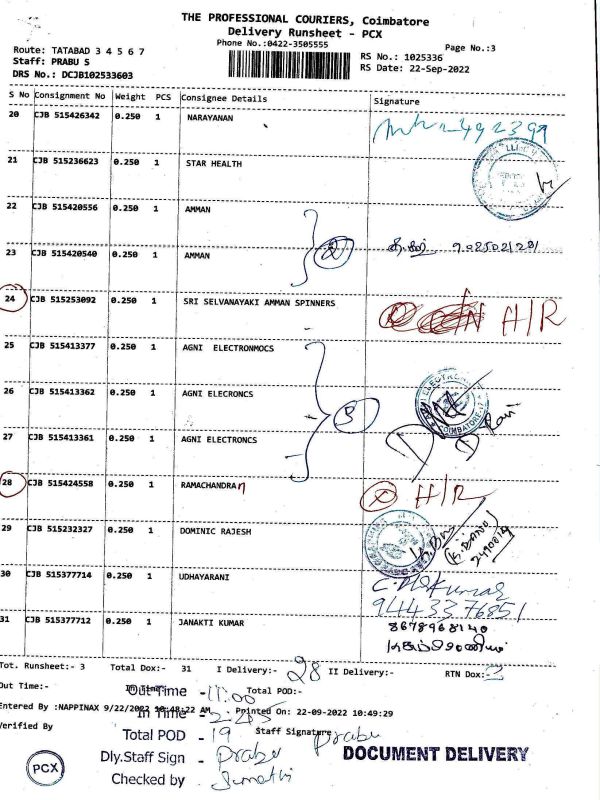 THE PROFESSIONAL COURIERS, Coimbatore
Delivery Runsheet - PCX
Phone No.:0422-3505555
Page No.:3
Route: TATABAD 3 4 5 6 7
Staff: PRABU S
DRS No.: DCJB102533603
RS No.: 1025336
RS Date: 22-Sep-2022
S No Consignment No Weight PCS Consignee Details Signature
20 CJB 515426342 0.250 1 NARAYANAN
21 CJB 515236623 0.250 1 STAR HEALTH
22 CJB 515420556 0.250 1 AMMAN
2
23 CJB 515420540 0.250 1 AMMAN
24 CJB 515253092 0.250 1 SRI SELVANAYAKI AMMAN SPINNERS H/R
25 CJB 515413377 0.250 1 AGNI ELECTRONMOCS
26 CJB 515413362 0.250 1 AGNI ELECRONCS
3
27 CJB 515413361 0.250 1 AGNI ELECTRONCS Ravi
28 CJB 515424558 0.250 1 RAMACHANDRAn H/R
29 CJB 515232327 0.250 1 DOMINIC RAJESH
30 CJB 515377714 0.250 1 UDHAYARANI
9443376851
31 CJB 515377712 0.250 1 JANAKTI KUMAR 8678968140
Tot. Runsheet:- 3 Total Dox:- 31 I Delivery:- 28 II Delivery:- RTN Dox:- 3
Out Time:- In Time:- Total POD:-
Out Time - 11:00
Entered By :NAPPINAX 9/22/2022 10:48:22 AM Printed On: 22-09-2022 10:49:29
In Time - 2:45
Verified By Staff Signature Prabu
Total POD - 19
Dly.Staff Sign - Prabu
DOCUMENT DELIVERY
PCX
Checked by Sumathi